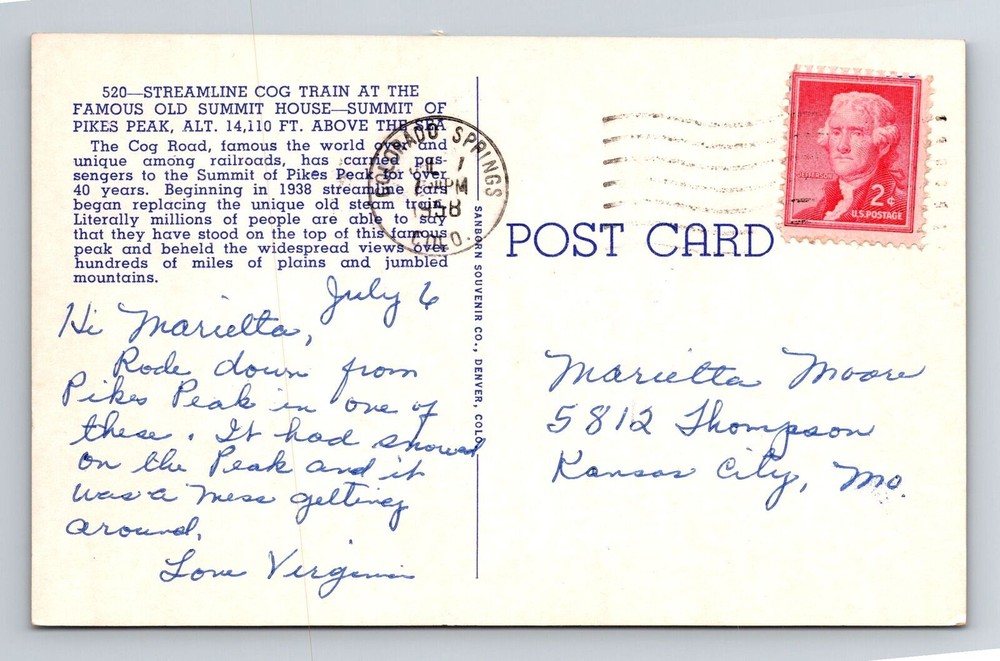 520—STREAMLINE COG TRAIN AT THE
FAMOUS OLD SUMMIT HOUSE—SUMMIT OF
PIKES PEAK, ALT. 14,110 FT. ABOVE THE SEA
The Cog Road, famous the world over and
unique among railroads, has carried pas-
sengers to the Summit of Pikes Peak for over
40 years. Beginning in 1938 streamline cars
began replacing the unique old steam train.
Literally millions of people are able to say
that they have stood on the top of this famous
peak and beheld the widespread views over
hundreds of miles of plains and jumbled
mountains.
July 6
Hi Marietta,
Rode down from
Pikes Peak in one of
these. It had snowed
on the Peak and it
was a mess getting
around.
Love Virginia
SANBORN SOUVENIR CO., DENVER, COLO.
COLORADO SPRINGS
PM
1958
COLO.
POST CARD
JEFFERSON
2¢
U.S. POSTAGE
Marietta Moore
5812 Thompson
Kansas City, Mo.